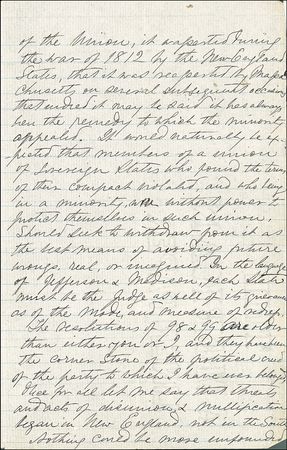 of the Union, it reasserted during
the war of 1812 by the New England
States, that it was reasserted by Massa
chusetts on several subsequent occasions,
that indeed it may be said it has always
been the remedy to which the minority
appealed. It would naturally be ex-
pected that members of a union
of Sovereign States who found the terms
of their compact violated, and who being
in a minority, were without power to
protect themselves in such union,
should seek to withdraw from it as
the best means of avoiding future
wrongs, real, or imagined. In the language
of Jefferson & Madison, each State
must be the Judge as well of its grievances
as of the Mode, and measure of redress.
The resolutions of 98 & 99 are older
than either you or I, and they have been
the corner Stone of the political creed
of the party to which I have ever belonged.
Once for all let me say that threats
and acts of disunion & nullification
began in New England, not in the South.
Nothing could be more unfounded